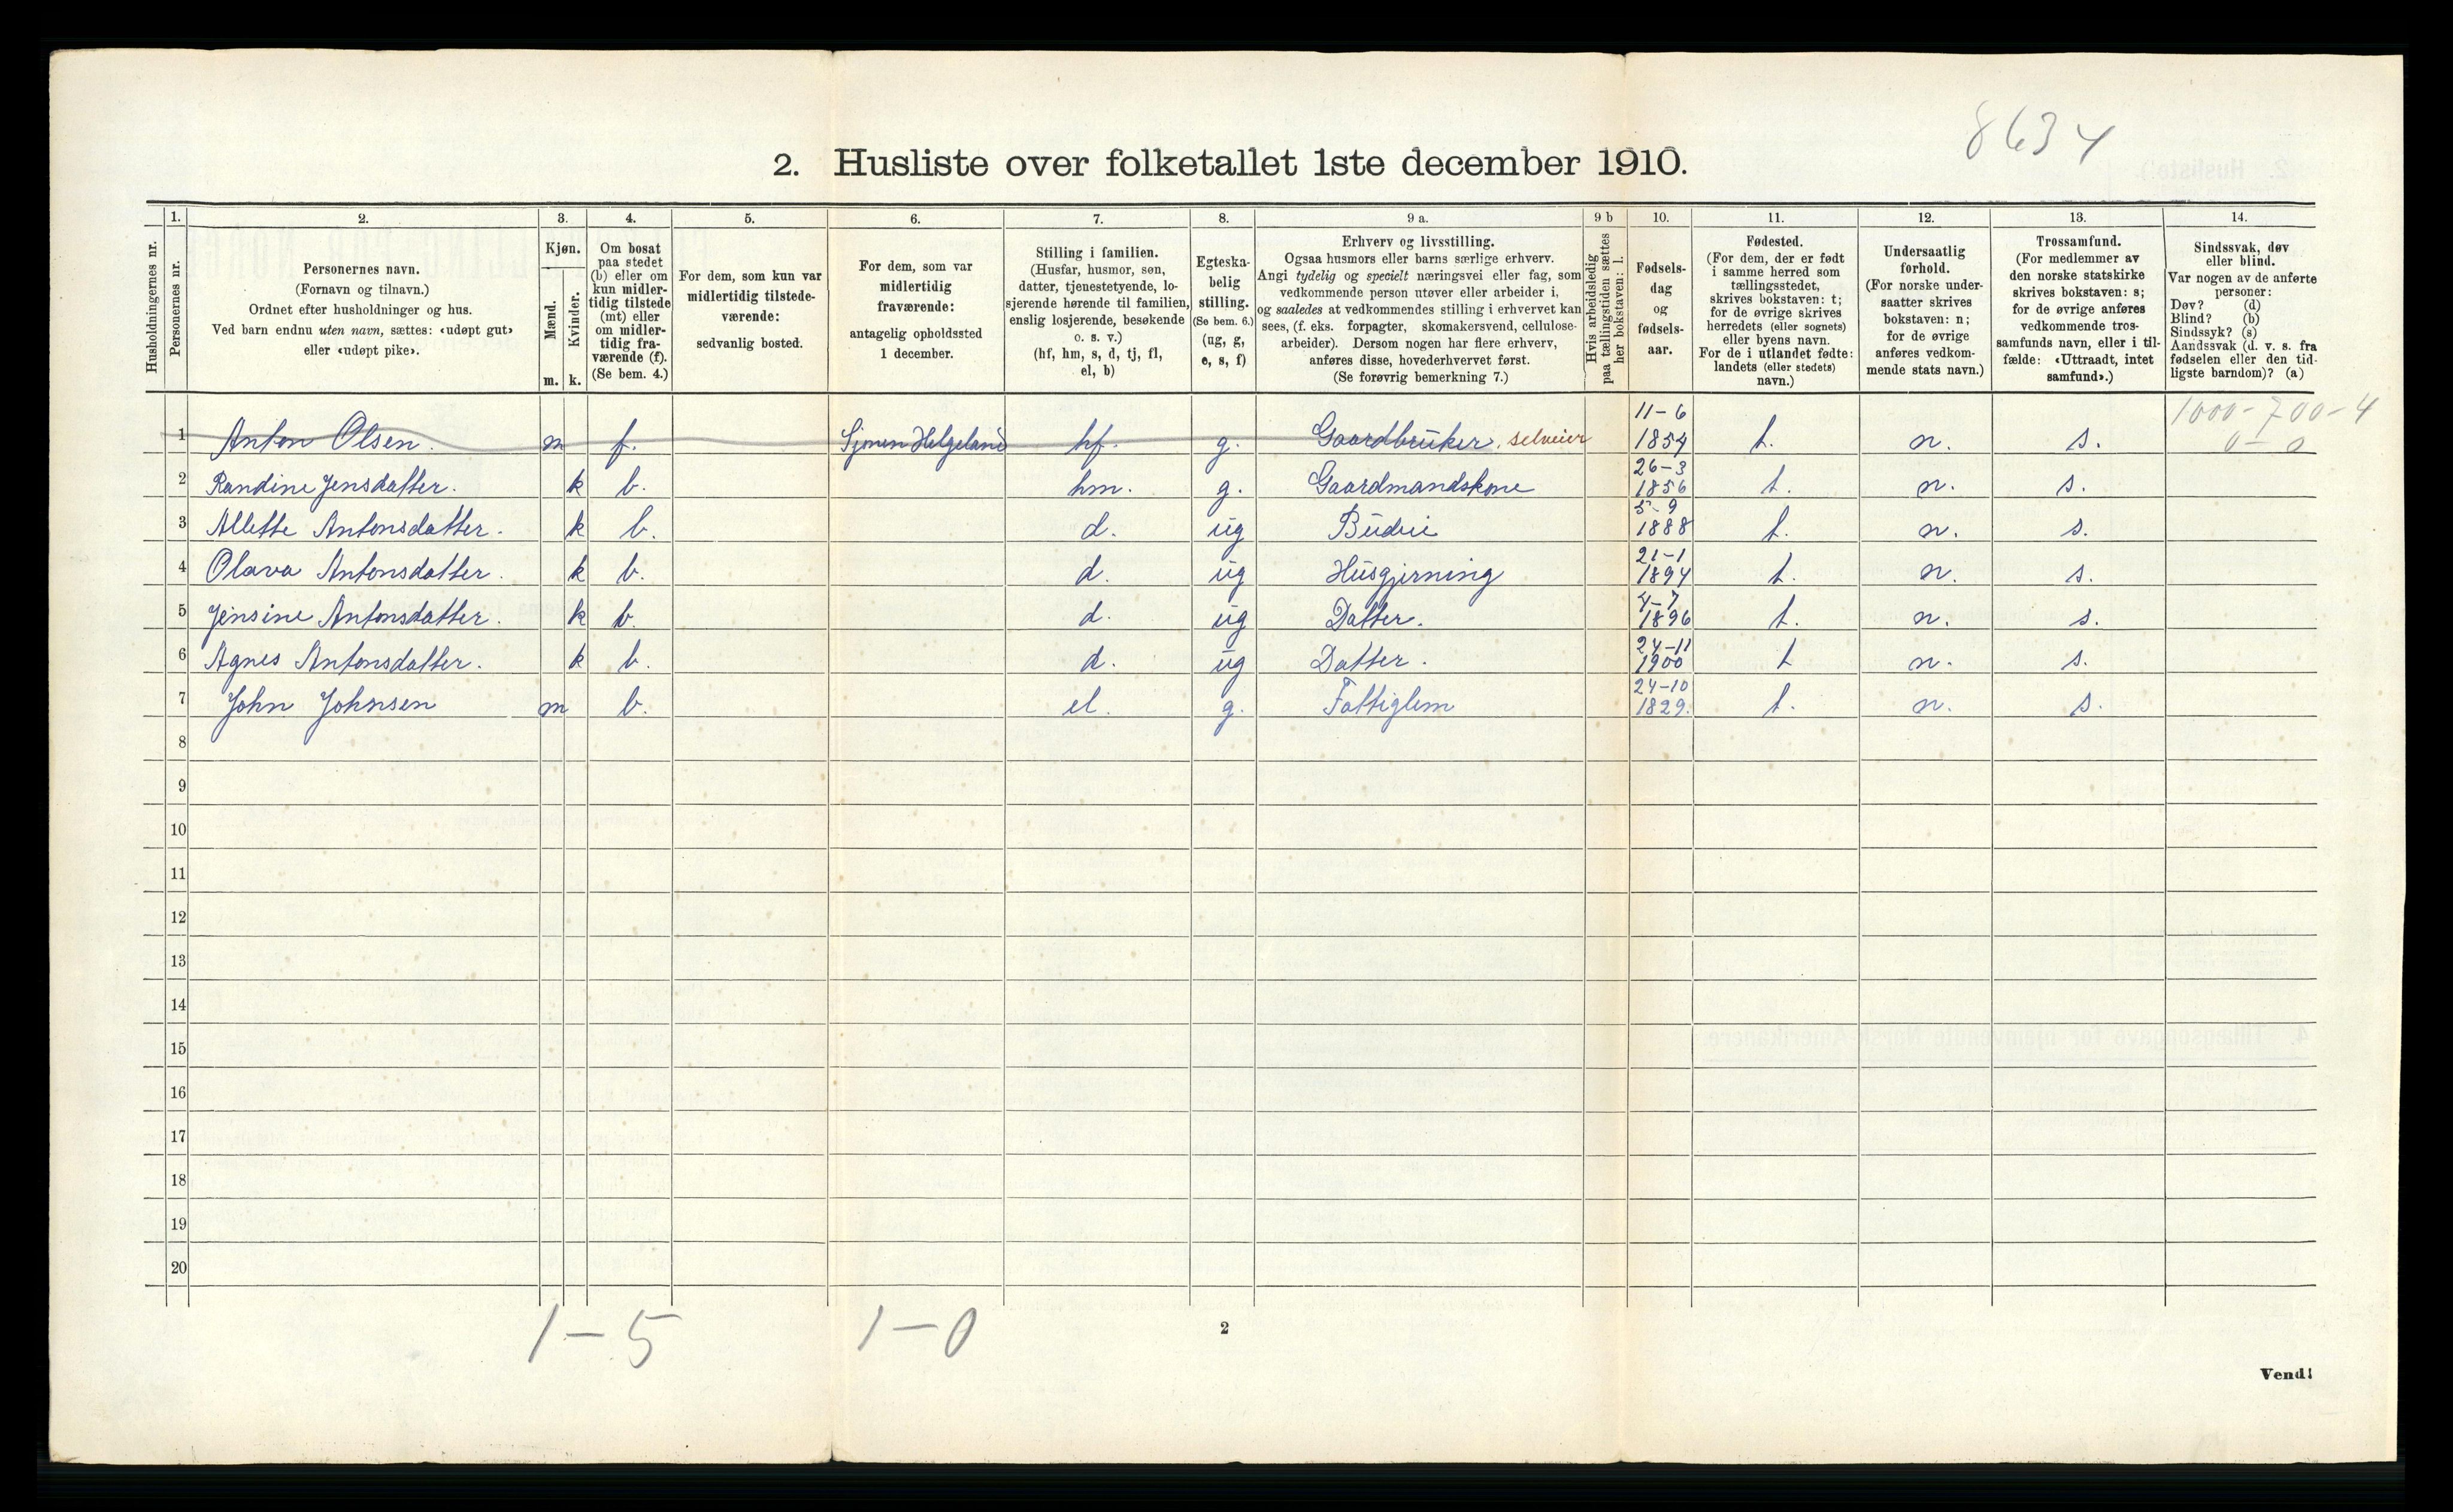 8634
2. Husliste over folketallet 1ste december 1910.
Husholdningernes nr.
1.
Personernes nr.
2.
Personernes navn.
(Fornavn og tilnavn.)
Ordnet efter husholdninger og hus.
Ved barn endnu uten navn, sættes: «udøpt gut»
eller «udøpt pike».
3.
Kjøn.
Mænd.
Kvinder.
m. k.
4.
Om bosat
paa stedet
(b) eller om
kun midler-
tidig tilstede
(mt) eller
om midler-
tidig fra-
værende (f).
(Se bem. 4.)
5.
For dem, som kun var
midlertidig tilstede-
værende:
sedvanlig bosted.
6.
For dem, som var
midlertidig
fraværende:
antagelig opholdssted
1 december.
7.
Stilling i familien.
(Husfar, husmor, søn,
datter, tjenestetyende, lo-
sjerende hørende til familien,
enslig losjerende, besøkende
o. s. v.)
(hf, hm, s, d, tj, fl,
el, b)
8.
Egteska-
belig
stilling.
(Se bem. 6.)
(ug, g,
e, s, f)
9 a.
Erhverv og livsstilling.
Ogsaa husmors eller barns særlige erhverv.
Angi tydelig og specielt næringsvei eller fag, som
vedkommende person utøver eller arbeider i,
og saaledes at vedkommendes stilling i erhvervet kan
sees, (f. eks. forpagter, skomakersvend, cellulose-
arbeider). Dersom nogen har flere erhverv,
anføres disse, hovederhvervet først.
(Se forøvrig bemerkning 7.)
9 b
Hvis arbeidsledig
paa tællingstiden sættes
her bokstaven: l.
10.
Fødsels-
dag
og
fødsels-
aar.
11.
Fødested.
(For dem, der er født
i samme herred som
tællingsstedet,
skrives bokstaven: t;
for de øvrige skrives
herredets (eller sognets)
eller byens navn.
For de i utlandet fødte:
landets (eller stedets)
navn.)
12.
Undersaatlig
forhold.
(For norske under-
saatter skrives
bokstaven: n;
for de øvrige
anføres vedkom-
mende stats navn.)
13.
Trossamfund.
(For medlemmer av
den norske statskirke
skrives bokstaven: s;
for de øvrige anføres
vedkommende tros-
samfunds navn, eller i til-
fælde: «Uttraadt, intet
samfund».)
14.
Sindssvak, døv
eller blind.
Var nogen av de anførte
personer:
Døv? (d)
Blind? (b)
Sindssyk? (s)
Aandssvak (d. v. s. fra
fødselen eller den tid-
ligste barndom)? (a)
1 Anton Olsen. m f. Helgeland hf. g. Gaardbruker, selveier 11-6 1854 t. n. s. 1000-700-4 0-0
2 Randine Jensdatter. k b. hm. g. Gaardmandskone 26-3 1856 t. n. s.
3 Allette Antonsdatter. k b. d. ug Budeie 5-9 1888 t. n. s.
4 Olava Antonsdatter. k b. d. ug Husgjerning 21-1 1894 t. n. s.
5 Jensine Antonsdatter. k b. d. ug Datter. 4-7 1896 t. n. s.
6 Agnes Antonsdatter. k b. d. ug Datter. 24-11 1900 t n. s.
7 John Johnsen m b. el. g. Fattiglem 24-10 1829. t. n. s.
8
9
10
11
12
13
14
15
16
17
18
19
20
1-5 1-0
2
Vend!